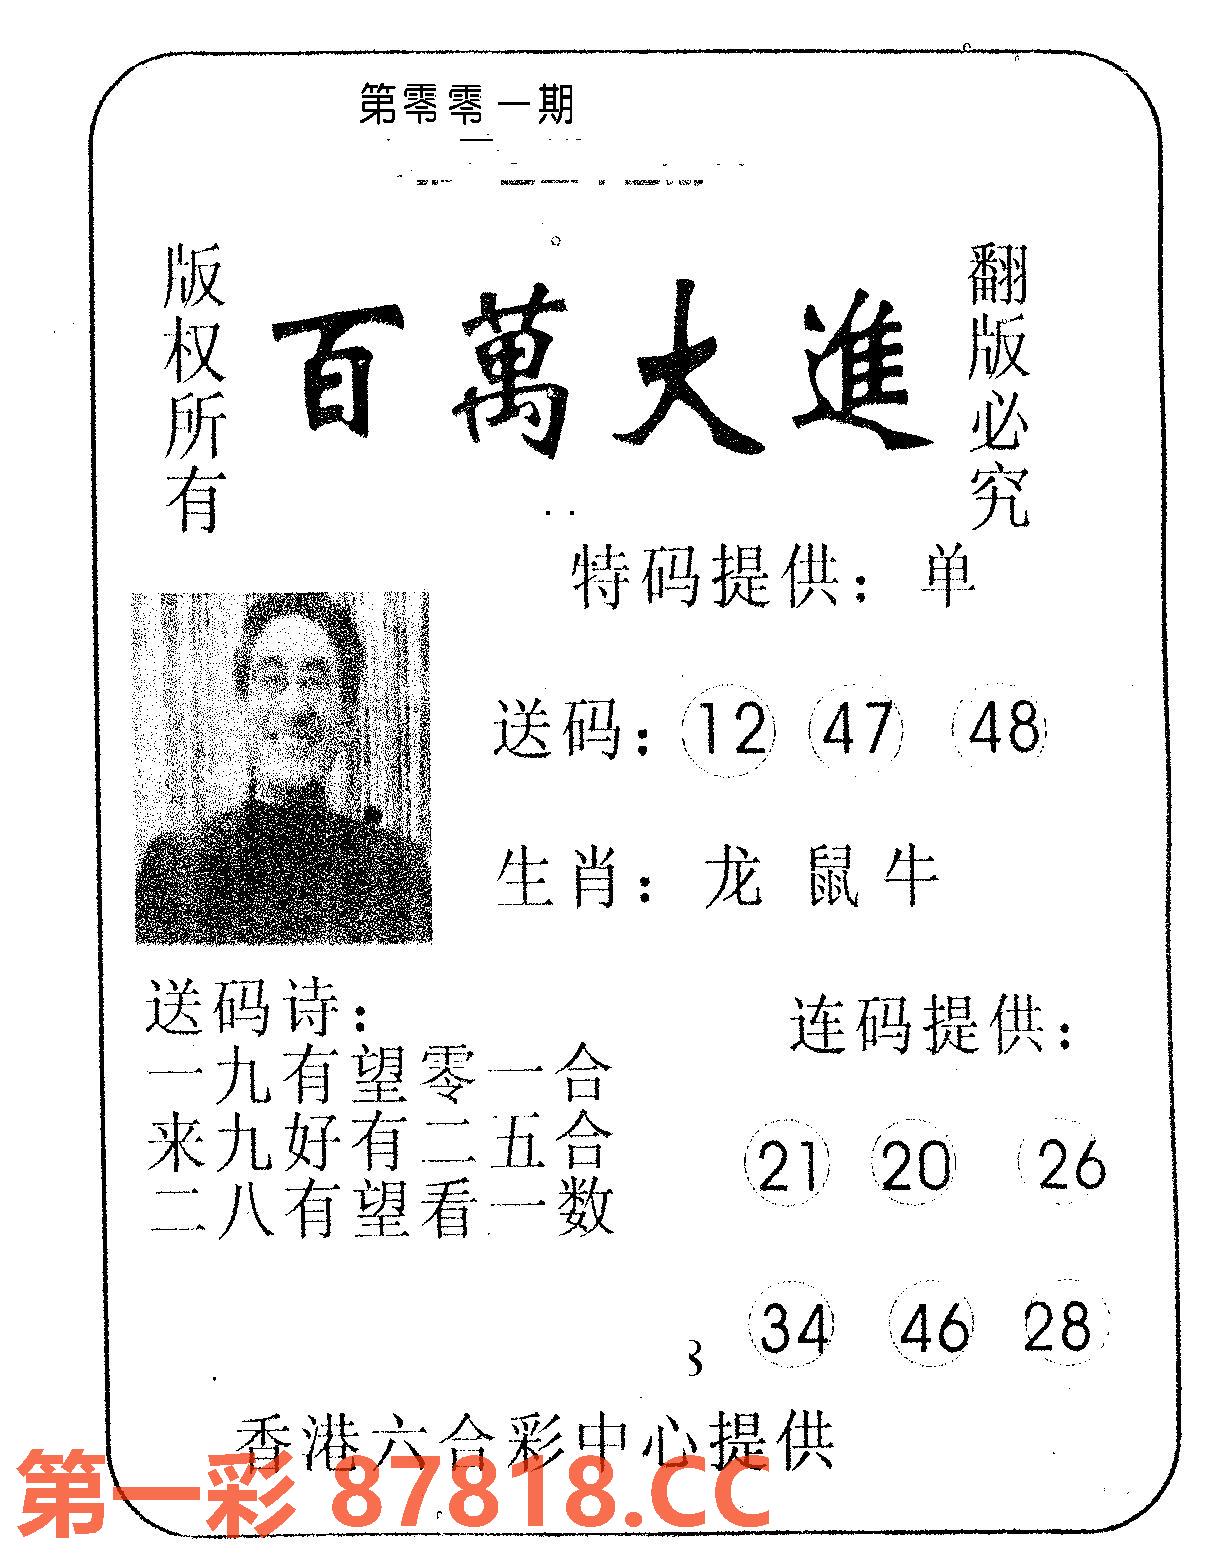 第零零一期
版权所有
百萬大進
翻版必究
特码提供：单
送码：12 47 48
生肖：龙 鼠 牛
送码诗：
一九有望零一合
来九好有二五合
二八有望看一数
连码提供：
21 20 26
34 46 28
香港六合彩中心提供
第一彩 87818.CC